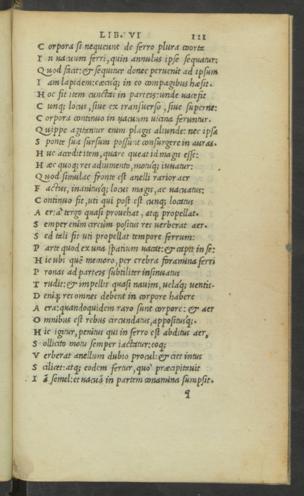 LIB. VI 111
C orpora si nequeunt de ferro plura coorta
I n uacuum ferri, quin annulus ipse sequatur:
Q uod facit: & sequitur donec peruenit ad ipsum
I am lapidem: cæcisq; in eo compagibus hæsit.
H oc fit item cunctas in parteis: unde uacefit
C unq; locus, siue ex transuerso, siue superne:
C orpora continuo in uacuum uicina feruntur.
Q uippe agitantur enim plagis aliunde: nec ipsa
S ponte sua sursum possunt consurgere in auras.
H uc accedit item, quare queat id magis esse:
H æc quoq; res adiumento, motuq; iuuatur:
Q uod simulac fronte est anelli rarior aer
F actus, inanitusq; locus magis, ac uacuatus;
C ontinuo fit, uti qui post est cunq; locatus
A er: à tergo quasi prouehat, atq; propellat.
S emper enim circum positus res uerberat aer.
S ed tali fit uti propellat tempore ferrum:
P arte quod ex una spatium uacat: & capit in se:
H ic ubi quē memoro, per crebra foramina ferri
P ronas ad parteis subtiliter insinuatus
T rudit: & impellit quasi nauim, uelaq; uentus.
D eniq; res omnes debent in corpore habere
A era: quandoquidem raro sunt corpore: & aer
O mnibus est rebus circundatus, appositusq;.
H ic igitur, penitus qui in ferro est abditus aer,
S ollicito motu semper iactatur: eoq;
V erberat anellum dubio procul: & ciet intus
S cilicet: atq; eodem fertur, quo præcipitauit
I ā semel: et uacuā in partem conamina sumpsit.